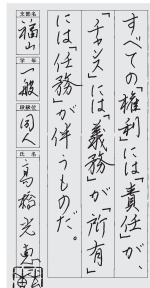 すべての「権利」には「責任」が、
「チャンス」には「義務」が「所有」
には「任務」が伴うものだ。
支部名 福山 学年 一般 段級位 同人 氏名 高橋光恵